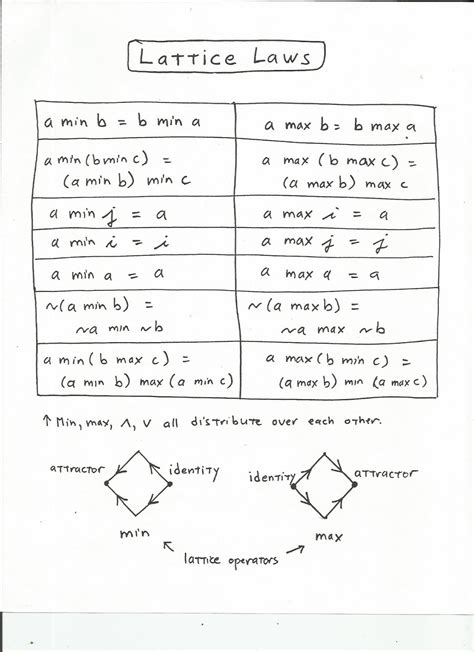 Lattice Laws
a min b = b min a
a max b = b max a
a min (b min c) =
(a min b) min c
a max (b max c) =
(a max b) max c
a min j = a
a max i = a
a min i = i
a max j = j
a min a = a
a max a = a
~(a min b) =
~a min ~b
~(a max b) =
~a max ~b
a min (b max c) =
(a min b) max (a min c)
a max (b min c) =
(a max b) min (a max c)
↑ Min, max, ∧, ∨ all distribute over each other.
attractor identity
identity attractor
min
max
lattice operators